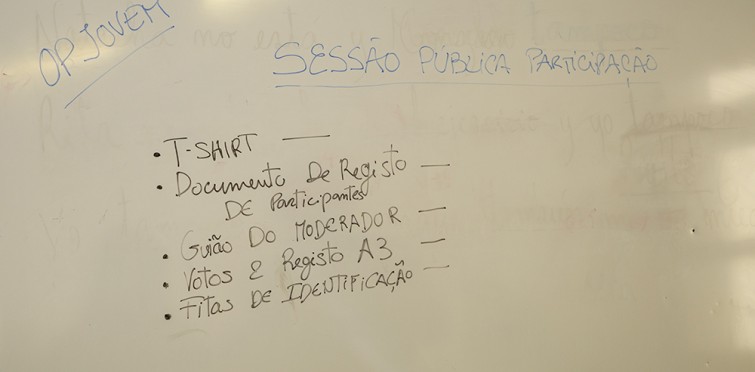 OP JOVEM
SESSÃO PÚBLICA PARTICIPAÇÃO
• T-SHIRT —
• Documento De Registo —
DE Participantes
• Guião Do MODERADOR —
• Votos e Registo A3 —
• Fitas DE IDENTIFICAÇÃO —